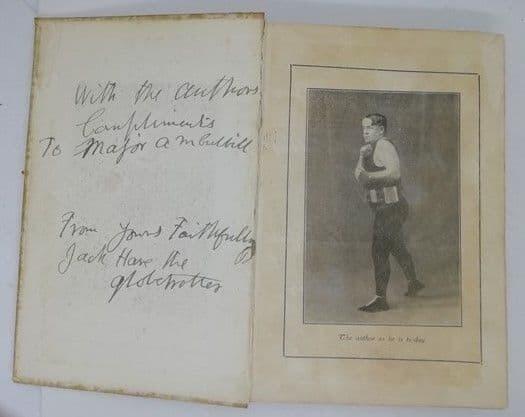 With the authors
Compliments
To Major
From Yours Faithfully
Jack Hare the
globetrotter
The author as he is to-day